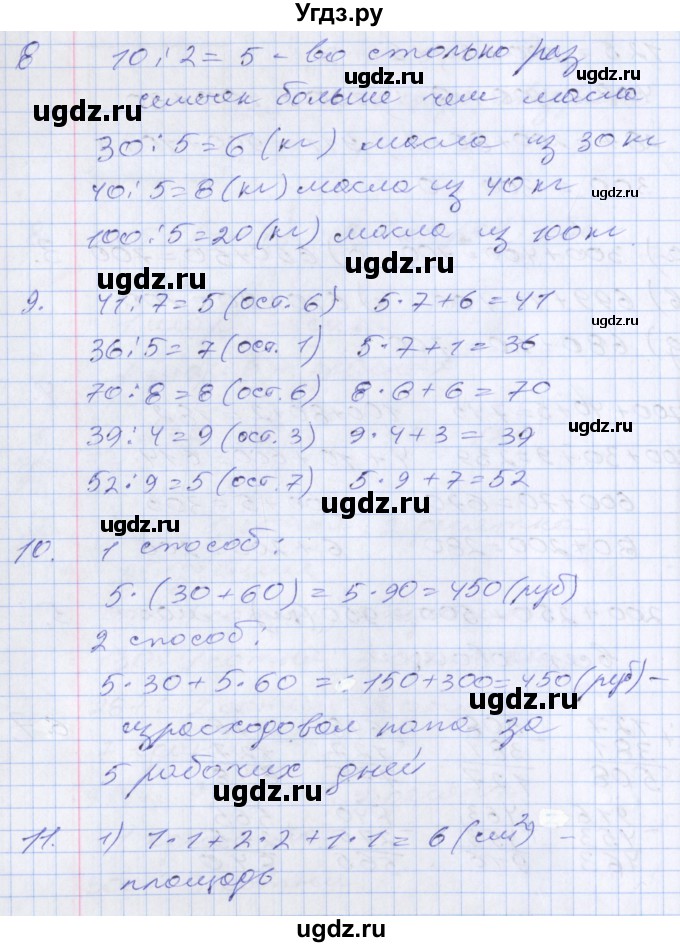 Угдз.ру
8 10:2=5 - во столько раз
ugdz.ru ugdz.ru
семечек больше чем масла
ugdz.ru
30:5=6 (кг) масла из 30 кг
40:5=8 (кг) масла из 40 кг
ugdz.ru ugdz.ru
100:5=20 (кг) масла из 100 кг
ugdz.ru ugdz.ru
9. 41:7=5 (ост. 6) 5·7+6=41
36:5=7 (ост. 1) 5·7+1=36
ugdz.ru
70:8=8 (ост. 6) 8·8+6=70
39:4=9 (ост. 3) 9·4+3=39
ugdz.ru
52:9=5 (ост. 7) 5·9+7=52
ugdz.ru ugdz.ru
10. 1 способ:
5·(30+60)=5·90=450 (руб)
ugdz.ru
2 способ:
5·30+5·60=150+300=450 (руб) -
ugdz.ru ugdz.ru
израсходовал папа за
5 рабочих дней
ugdz.ru
11. 1) 1·1+2·2+1·1=6 (см²) -
ugdz.ru
площадь
ugdz.ru